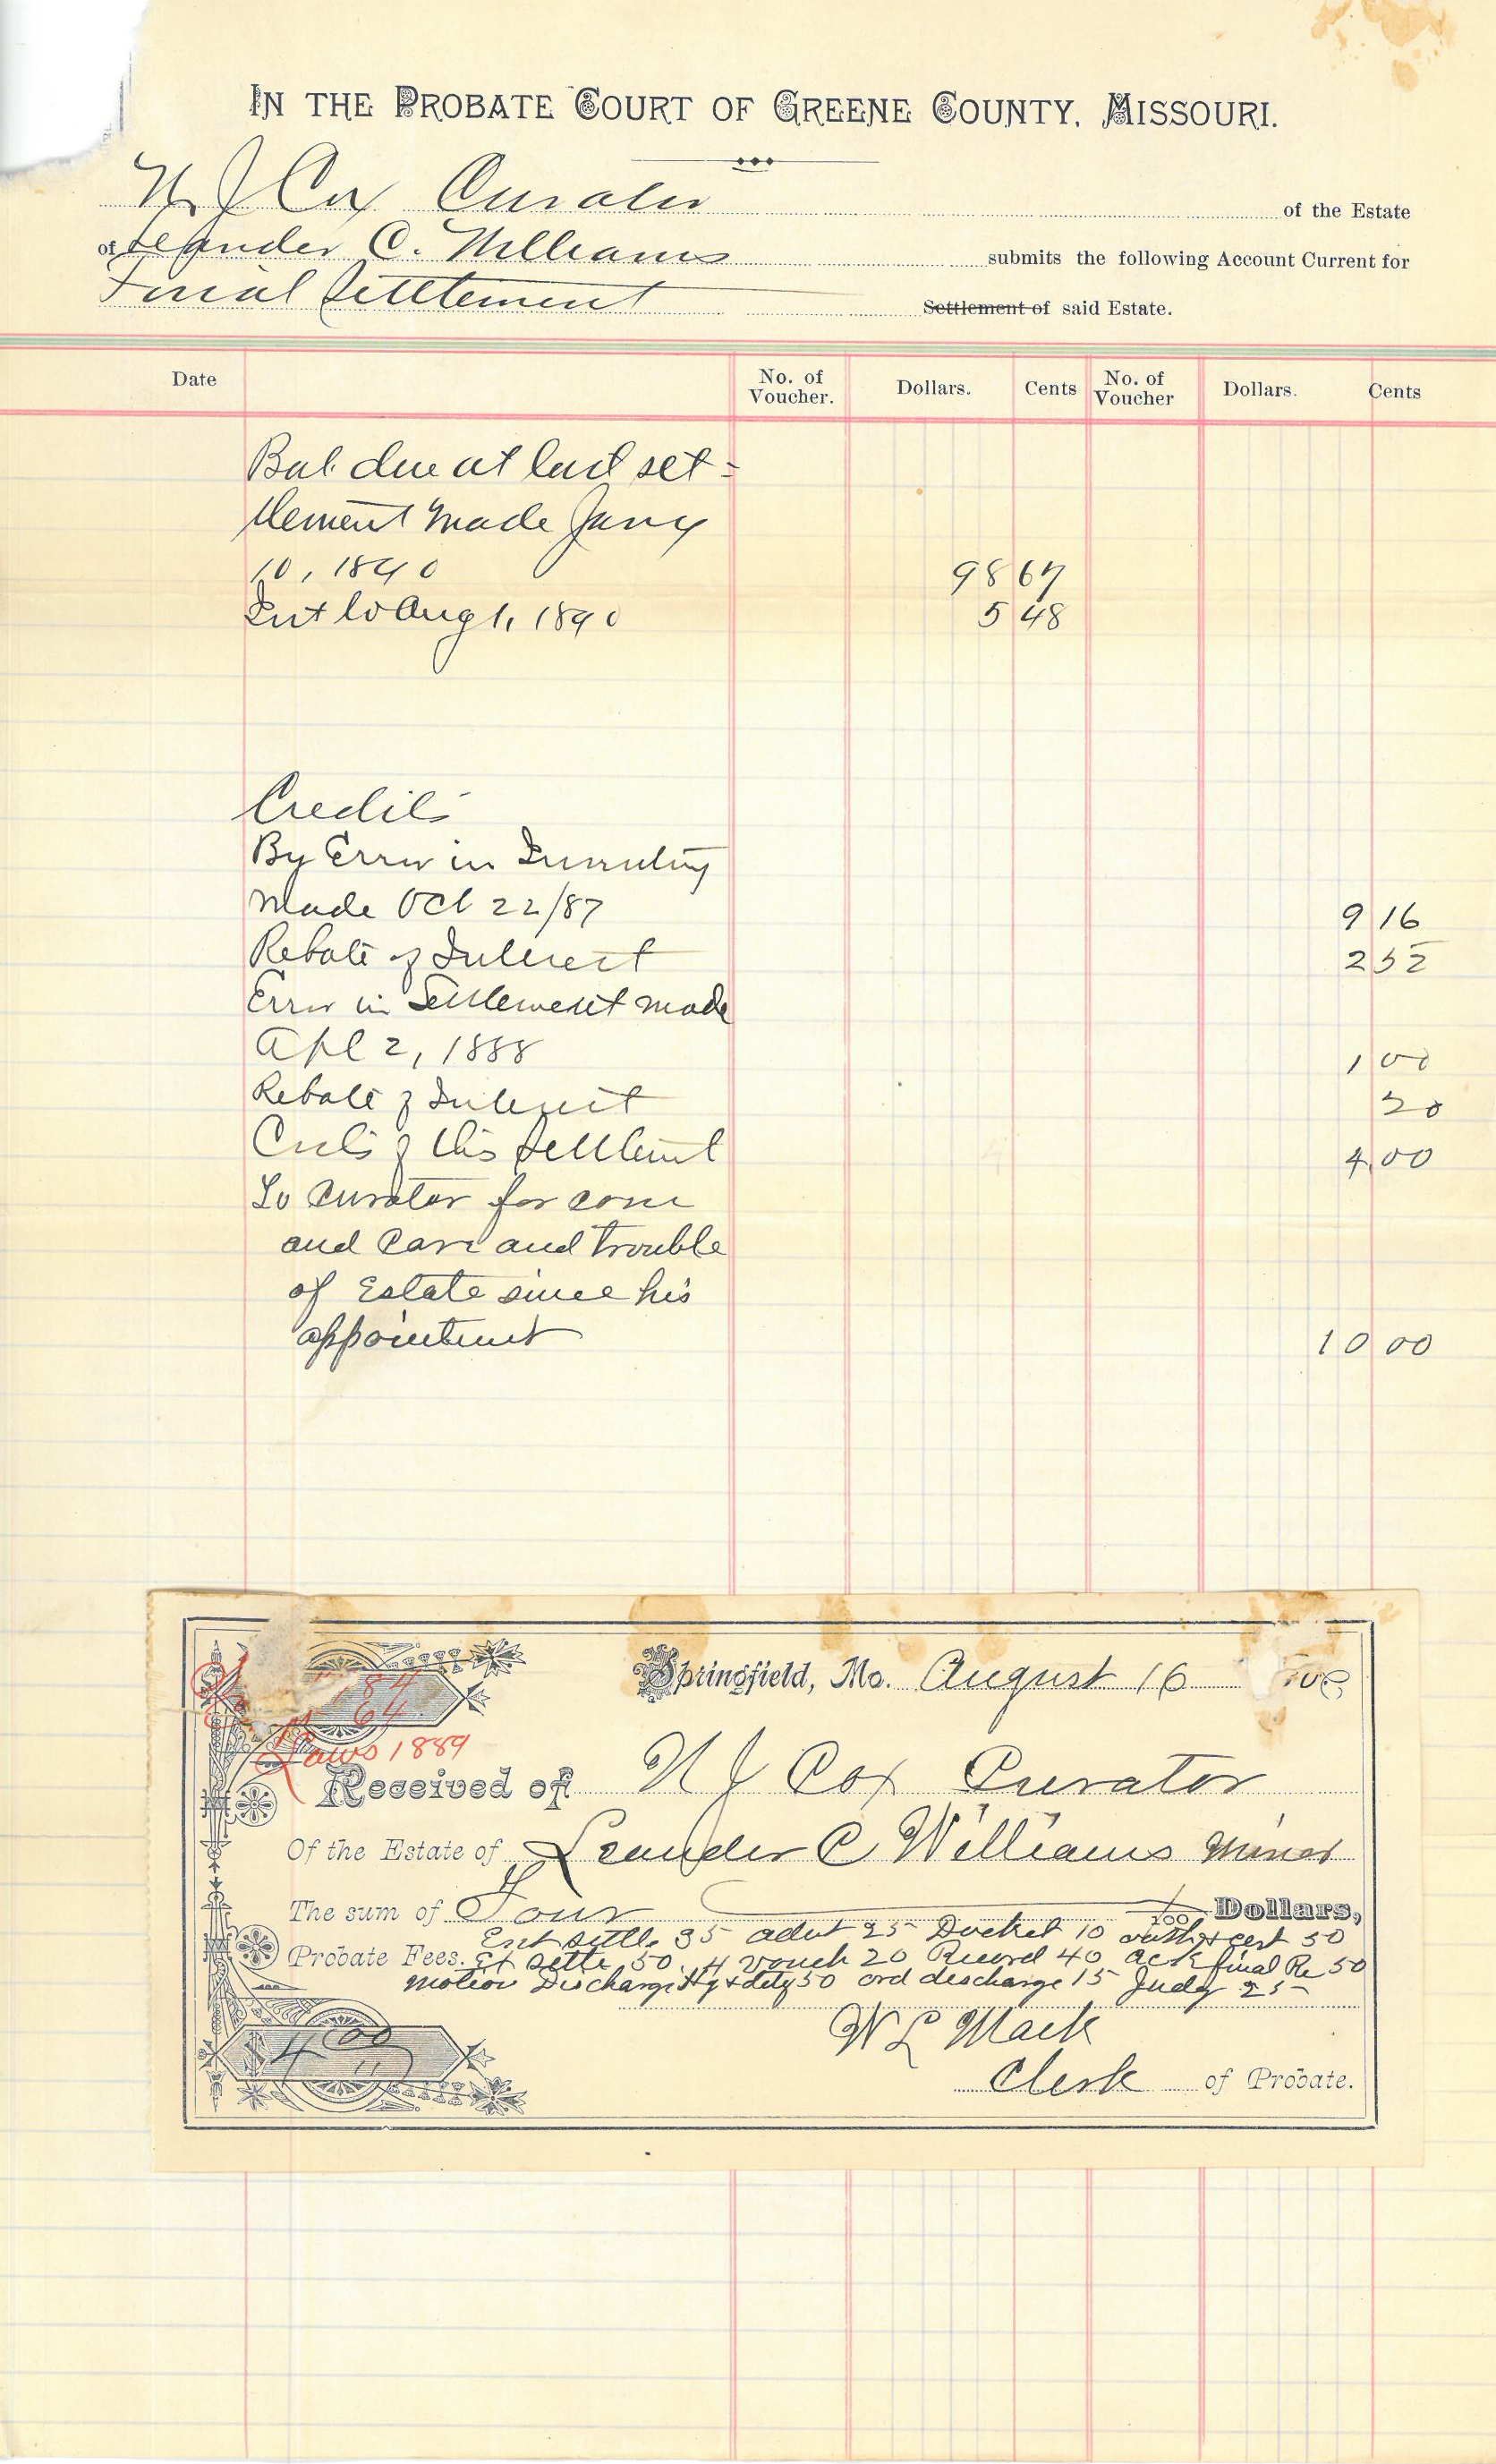 IN THE PROBATE COURT OF GREENE COUNTY, MISSOURI.
N. J. Cox Curator of the Estate
of Leander C. Williams submits the following Account Current for
Final Settlement Settlement of said Estate.
Date No. of Voucher. Dollars. Cents No. of Voucher Dollars. Cents
Bal. due at last set-
tlement made Jany
10, 1890 98 67
Int to Aug 1, 1890 5 48
Credits
By Error in Inventory
made Oct 22/87 9 16
Rebate of Interest 2 52
Error in Settlement made
Apl 2, 1888 1 00
Rebate of Interest 20
Costs of this Settlement 4 00
To Curator for com
and care and trouble
of Estate since his
appointment 10 00
Springfield, Mo. August 16
84
64
Laws 1889
Received of N J Cox Curator
Of the Estate of Leander C Williams minor
The sum of Four /100 Dollars,
Ent settle 35 advt 25 Docket 10 oath & cert 30
Probate Fees. Ex settle 50. 4 vouch 20 Record 40 ack final Re 50
motion Discharge 50 ord discharge 15 Judg 25
W L Mack
$4 00
Clerk of Probate.